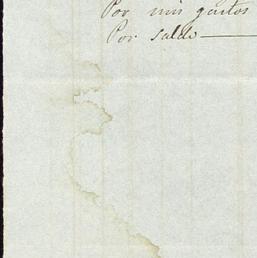 Por mis gastos
Por saldo